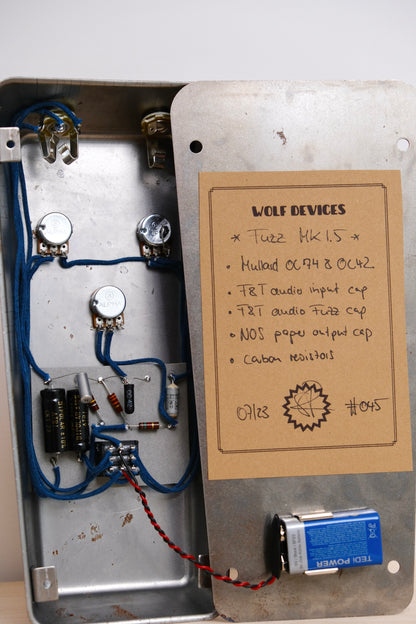 WOLF DEVICES
* Fuzz MK 1.5 *
• Mullard OC74 & OC42
• F&T audio input cap
• F&T audio Fuzz cap
• NOS paper output cap
• Carbon resistors
07/23 #045
TEDI POWER